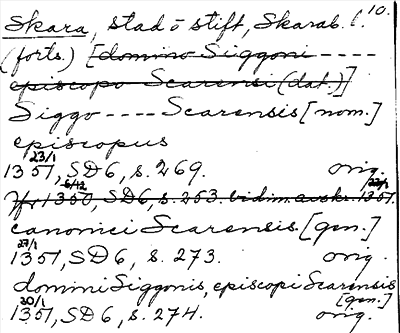 10.
Skara, stad o stift, Skarab. l.
(forts.) [domino Siggoni ----
episcopo Scarensi (dat.)]
Siggo ---- Scarensis [nom.]
episcopus
23/1
1351, SD6, s. 269. orig.
6/12 23/1
Jfr 1350, SD6, s. 253. vidim. avskr. 1351.
canonici Scarensis [gen.]
27/1
1351, SD6, s. 273. orig.
domini Siggonis, episcopi Scarensis
[gen.]
30/1
1351, SD6, s. 274. orig.